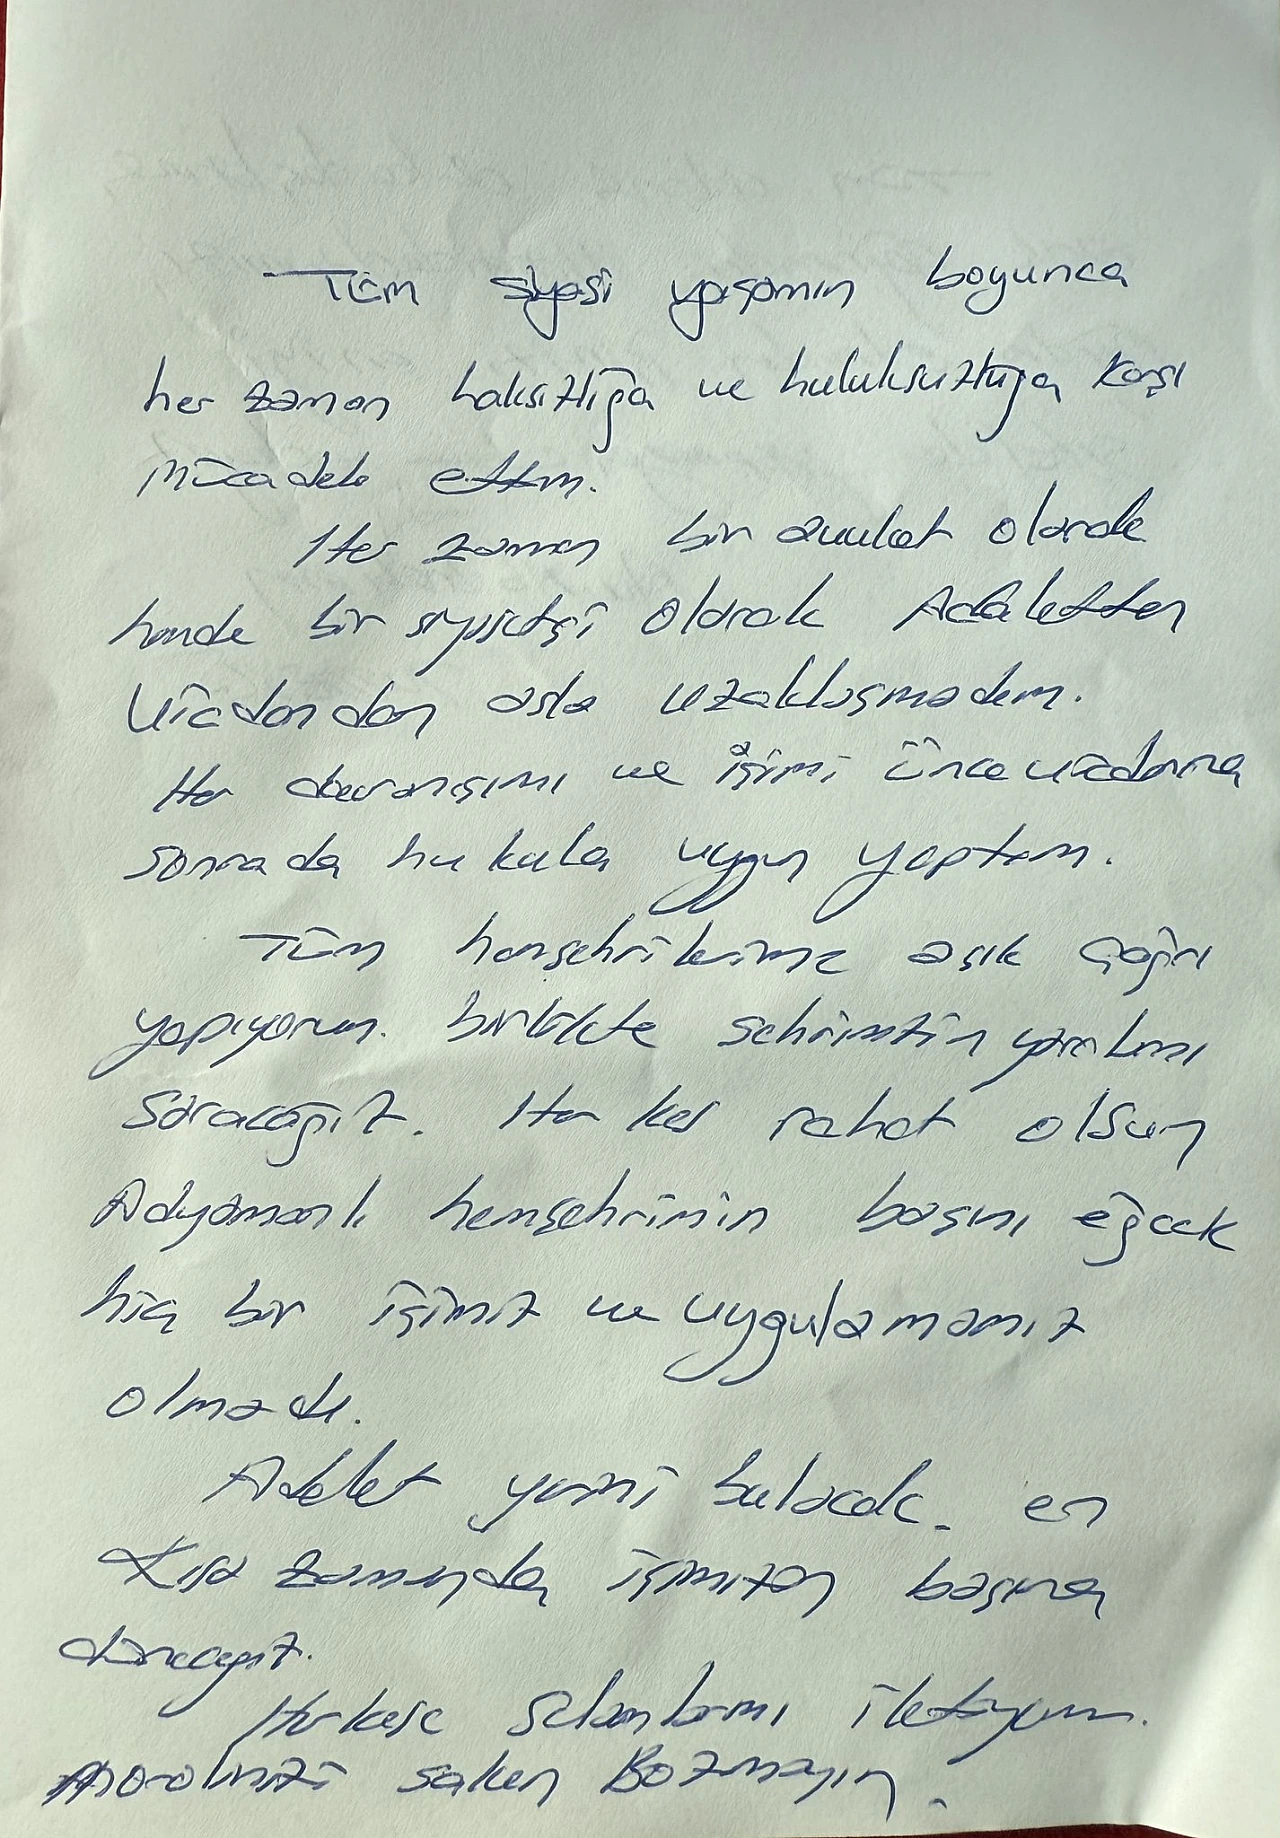 Tüm siyasi yaşamım boyunca
her zaman haksızlığa ve hukuksuzluğa karşı
mücadele ettim.
Her zaman bir avukat olarak
hemde bir siyasetçi olarak Adaletten
Vicdandan asla uzaklaşmadım.
Her davranışımı ve işimi önce vicdanıma
sonrada hukuka uygun yaptım.
Tüm hemşehrilerime açık çağrı
yapıyorum. birlikte şehrimizin yaralarını
saracağız. Her kes rahat olsun
Adıyamanlı hemşehrimin başını eğecek
hiç bir işimiz ve uygulamamız
olmadı.
Adalet yerini bulacak. en
kısa zamanda işimizin başına
döneceğiz.
Herkese selamlarımı iletiyorum.
moralinizi sakın Bozmayın.